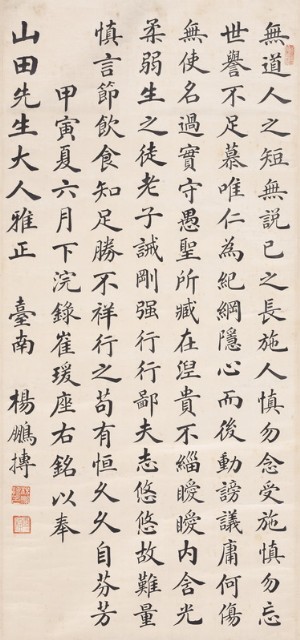 無道人之短無説己之長施人慎勿念受施慎勿忘
世譽不足慕唯仁為紀綱隱心而後動謗議庸何傷
無使名過實守愚聖所臧在涅貴不緇曖曖内含光
柔弱生之徒老子誡剛强行行鄙夫志悠悠故難量
慎言節飲食知足勝不祥行之苟有恒久久自芬芳
甲寅夏六月下浣錄崔瑗座右銘以奉
山田先生大人雅正 臺南 楊鵬摶